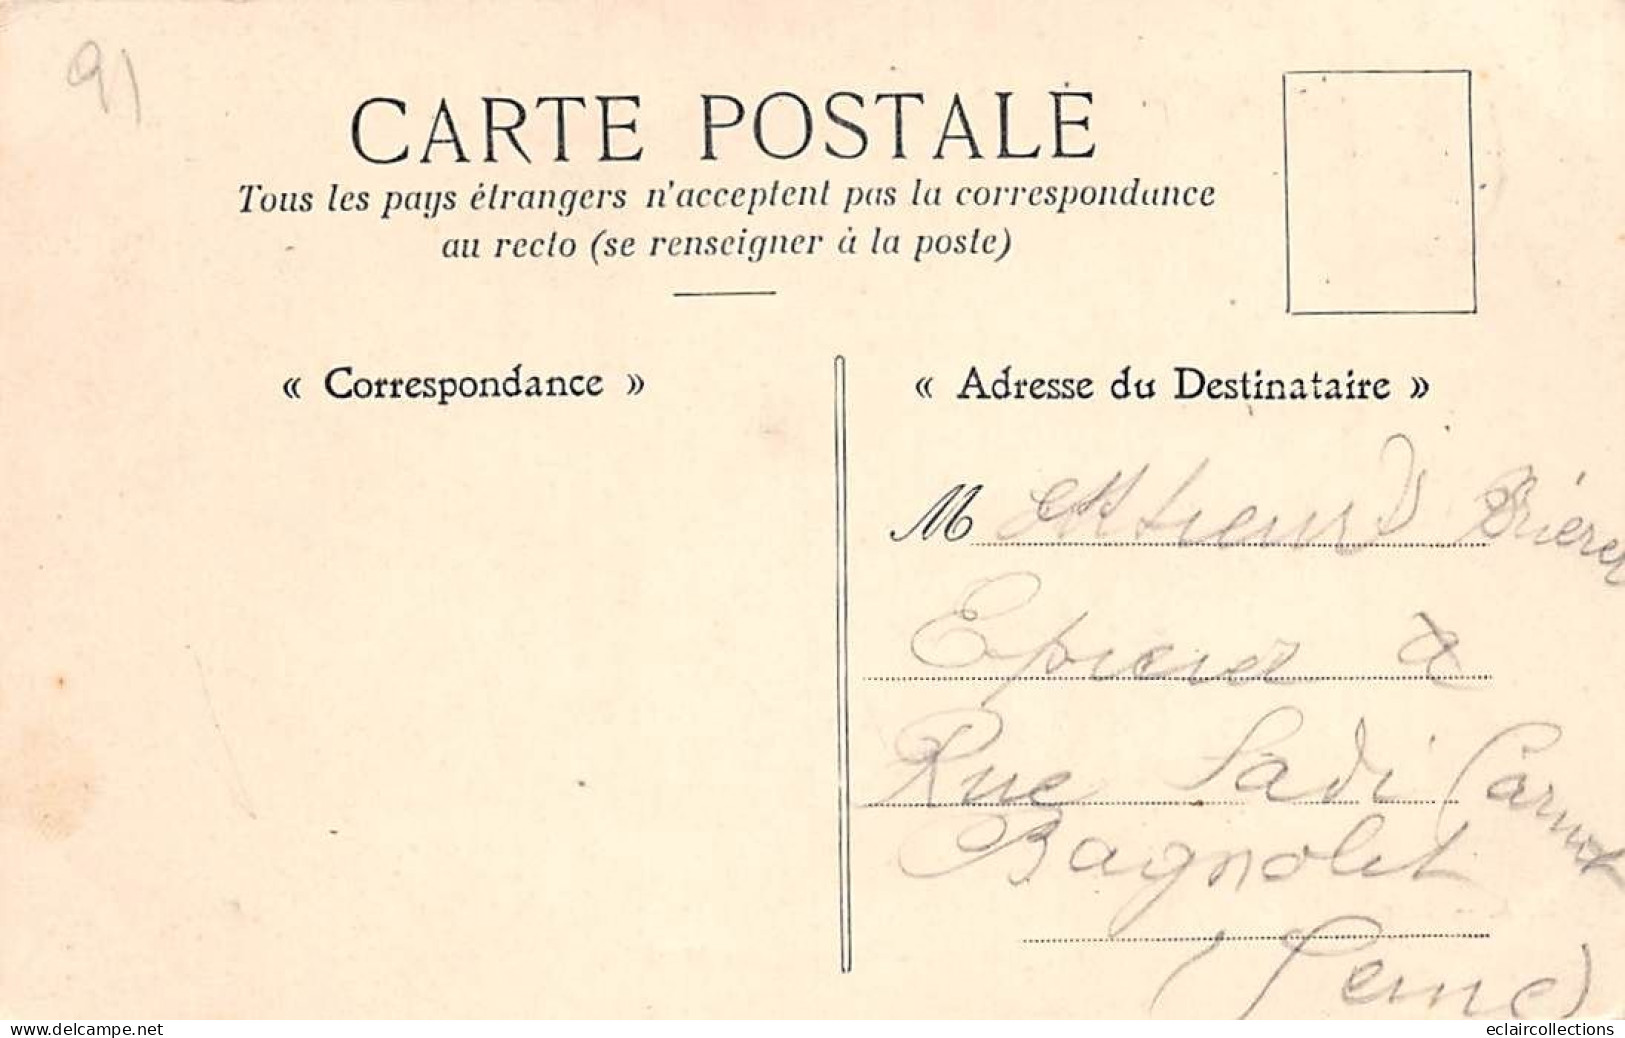 91
CARTE POSTALE
Tous les pays étrangers n'acceptent pas la correspondance
au recto (se renseigner à la poste)
« Correspondance »
« Adresse du Destinataire »
M
Epicier à
Rue Sadi Carnot
Bagnolet
(Seine)
www.delcampe.net
eclaircollections